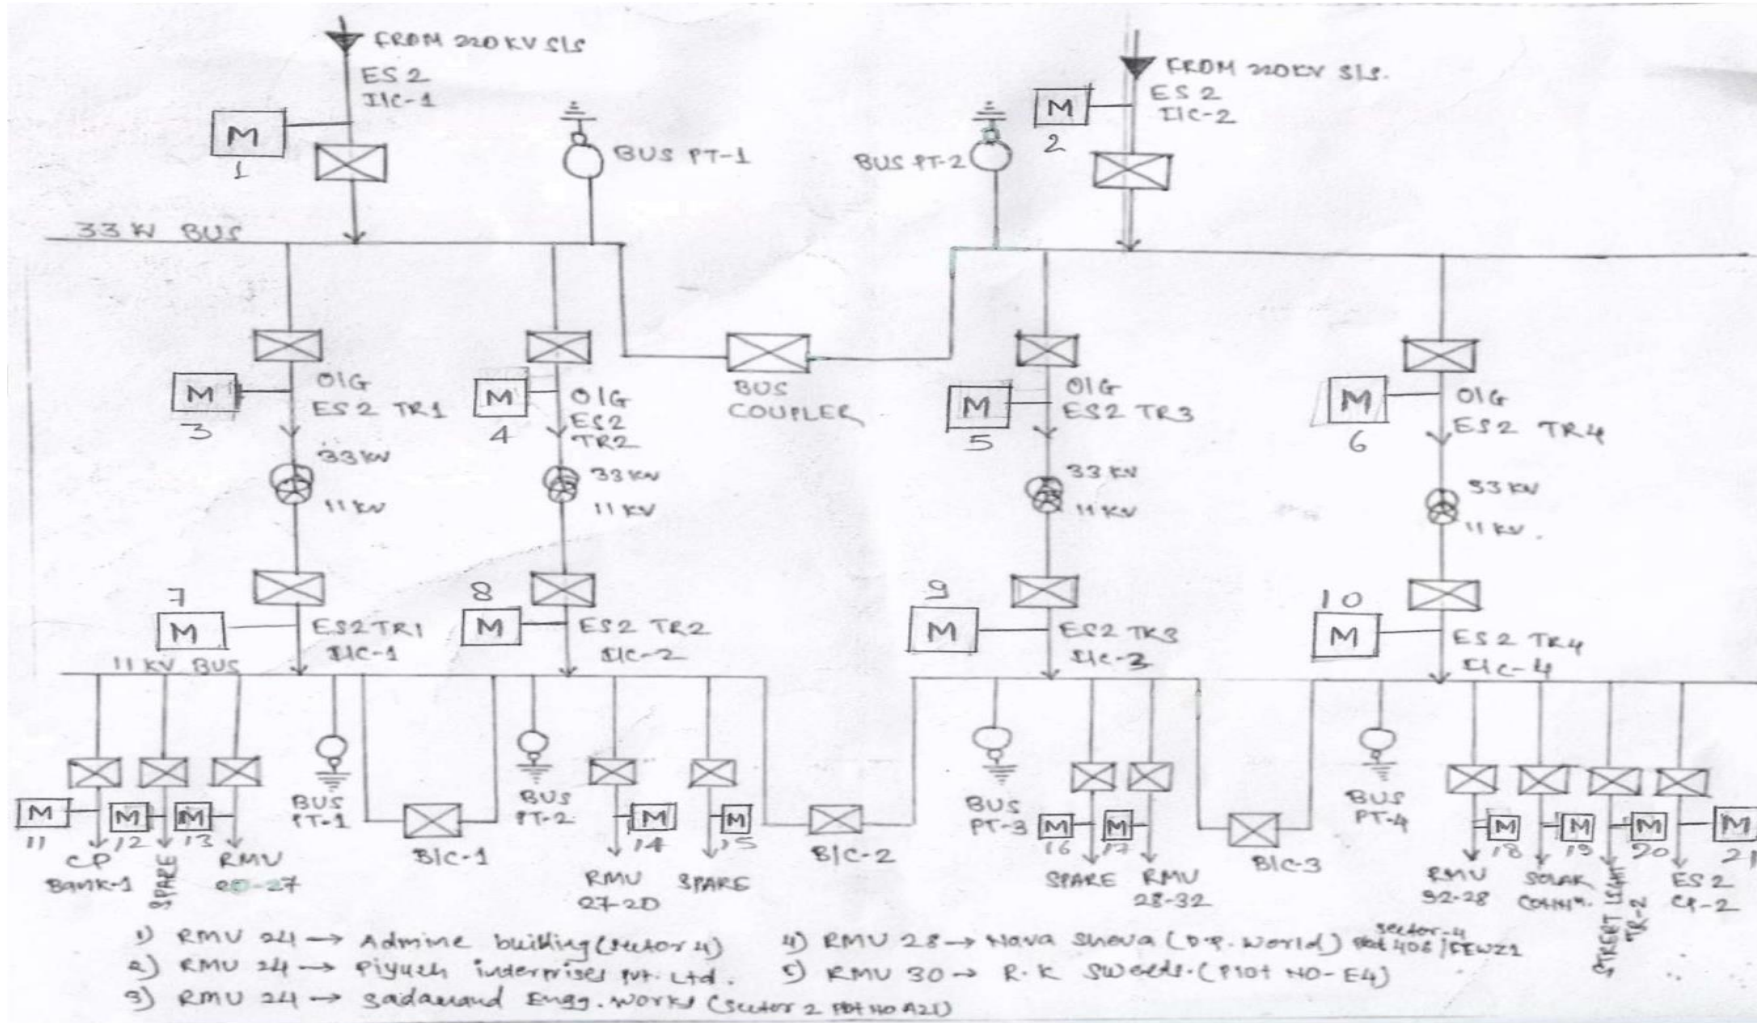 FROM 220KV S/S
ES 2
I/C-1
M
1
BUS PT-1
FROM 220KV S/S.
ES 2
I/C-2
M
2
BUS PT-2
33 KV BUS
M
3
O/G
ES 2 TR1
M
4
O/G
ES2
TR2
BUS
COUPLER
M
5
O/G
ES2 TR3
M
6
O/G
ES2 TR4
33 KV
11 KV
33 KV
11 KV
33 KV
11 KV
33 KV
11 KV.
7
M
ES2 TR1
I/C-1
8
M
ES2 TR2
I/C-2
9
M
ES2 TR3
I/C-3
10
M
ES2 TR4
I/C-4
11 KV BUS
M
11
CP
Bank-1
M
12
SPARE
M
13
RMU
-27
BUS
PT-1
B/C-1
BUS
PT-2
M
14
RMU
27-20
M
15
SPARE
B/C-2
BUS
PT-3
M
16
SPARE
M
17
RMU
28-32
B/C-3
BUS
PT-4
M
18
RMU
32-28
M
19
SOLAR
COMMn.
M
20
STREET LIGHT
TR-2
M
21
ES2
CP-2
1) RMU 24 → Admine builling (sector 4)
2) RMU 24 → Piyush inderprises Pvt. Ltd.
3) RMU 24 → Sadanand Engg. works (Sector 2 Plot No A21)
4) RMU 28 → Nava Sheva (D.P. World) sector-4 Plot 406/
5) RMU 30 → R.K Sweets. (Plot NO-E4)